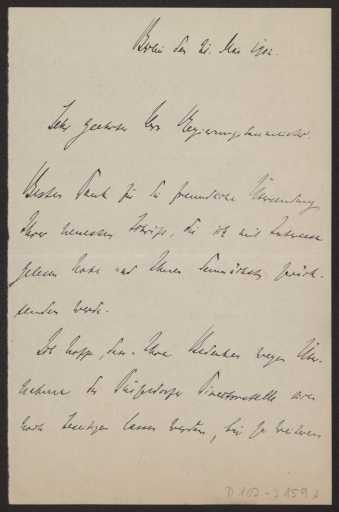 Berlin den 21. Mai 1902.
Sehr geehrter Herr Regierungsbaumeister.
Besten Dank für die freundliche Übersendung
Ihrer neuesten Schrift, die ich mit Interesse
gelesen habe und Ihnen demnächst zurück-
senden werde.
Ich hoffe, dass Ihre Bedenken wegen Über-
nahme der Düsseldorfer Direktorstelle sich
noch beseitigen lassen werden, bin ja weitere
D 102-2 159 2